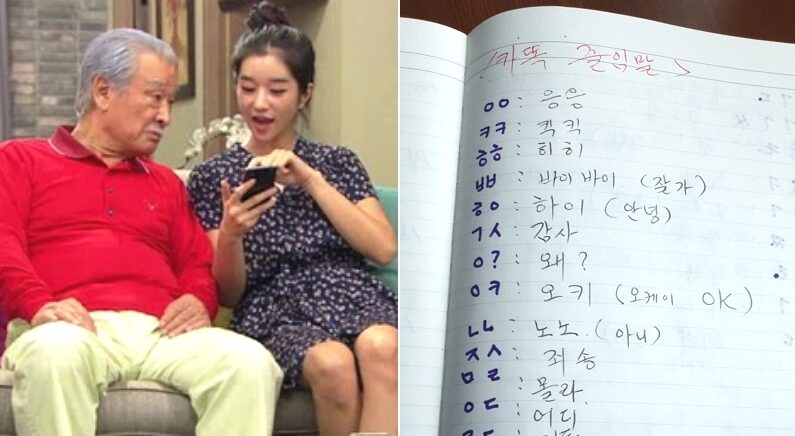 <카똑 줄임말>
ㅇㅇ : 응응
ㅋㅋ : 킥킥
ㅎㅎ : 히히
ㅃㅃ : 바이바이 (잘가)
ㅎㅇ : 하이 (안녕)
ㄱㅅ : 감사
ㅇ? : 왜?
ㅇㅋ : 오키 (오케이 OK)
ㄴㄴ : 노노 (아니)
ㅈㅅ : 죄송
ㅁㄹ : 몰라
ㅇㄷ : 어디